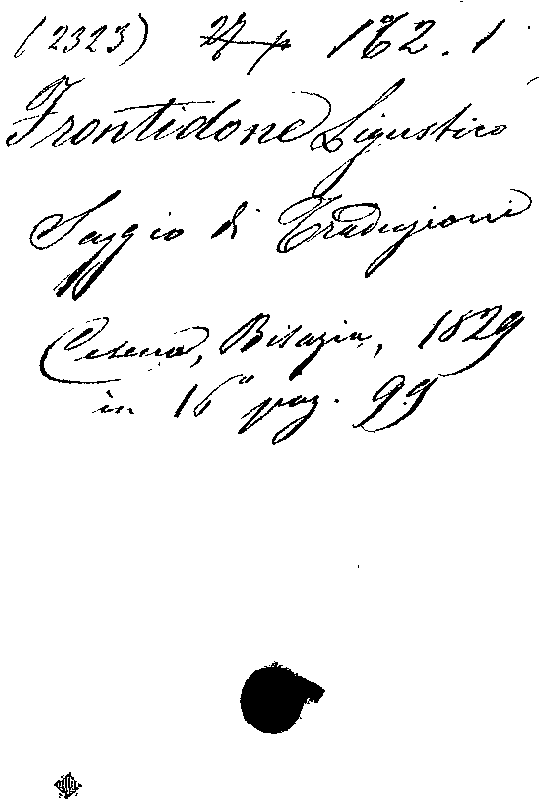 (2323) 162.1
Frontidone Ligustico
Saggio di Traduzioni
Cesena, Bisazia, 1829
in 16° pag. 99